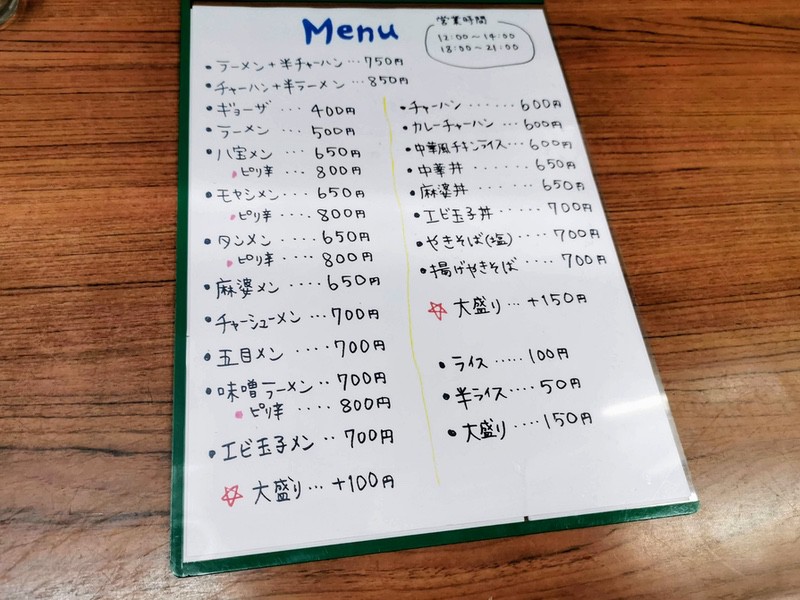 Menu
営業時間
12:00〜14:00
18:00〜21:00
• ラーメン+半チャーハン … 750円
• チャーハン+半ラーメン … 850円
• ギョーザ ・・・ 400円
• ラーメン ・・・・ 500円
• 八宝メン ・・・・ 650円
• ピリ辛 ・・・・ 800円
• モヤシメン ・・・・ 650円
• ピリ辛 ・・・・ 800円
• タンメン ・・・・ 650円
• ピリ辛 ・・・・ 800円
• 麻婆メン ・・・・ 650円
• チャーシューメン ・・・ 700円
• 五目メン ・・・・ 700円
• 味噌ラーメン ・・ 700円
• ピリ辛 ・・・・ 800円
• エビ玉子メン ・・ 700円
☆ 大盛り … +100円
• チャーハン ・・・・・・ 600円
• カレーチャーハン ・・・ 600円
• 中華風チキンライス ・・・ 600円
• 中華丼 ・・・・・ 650円
• 麻婆丼 ・・・・・ 650円
• エビ玉子丼 ・・・・・ 700円
• やきそば(塩) ・・・・ 700円
• 揚げやきそば ・・・・ 700円
☆ 大盛り … +150円
• ライス ・・・・・ 100円
• 半ライス ・・・・ 50円
• 大盛り ・・・・ 150円